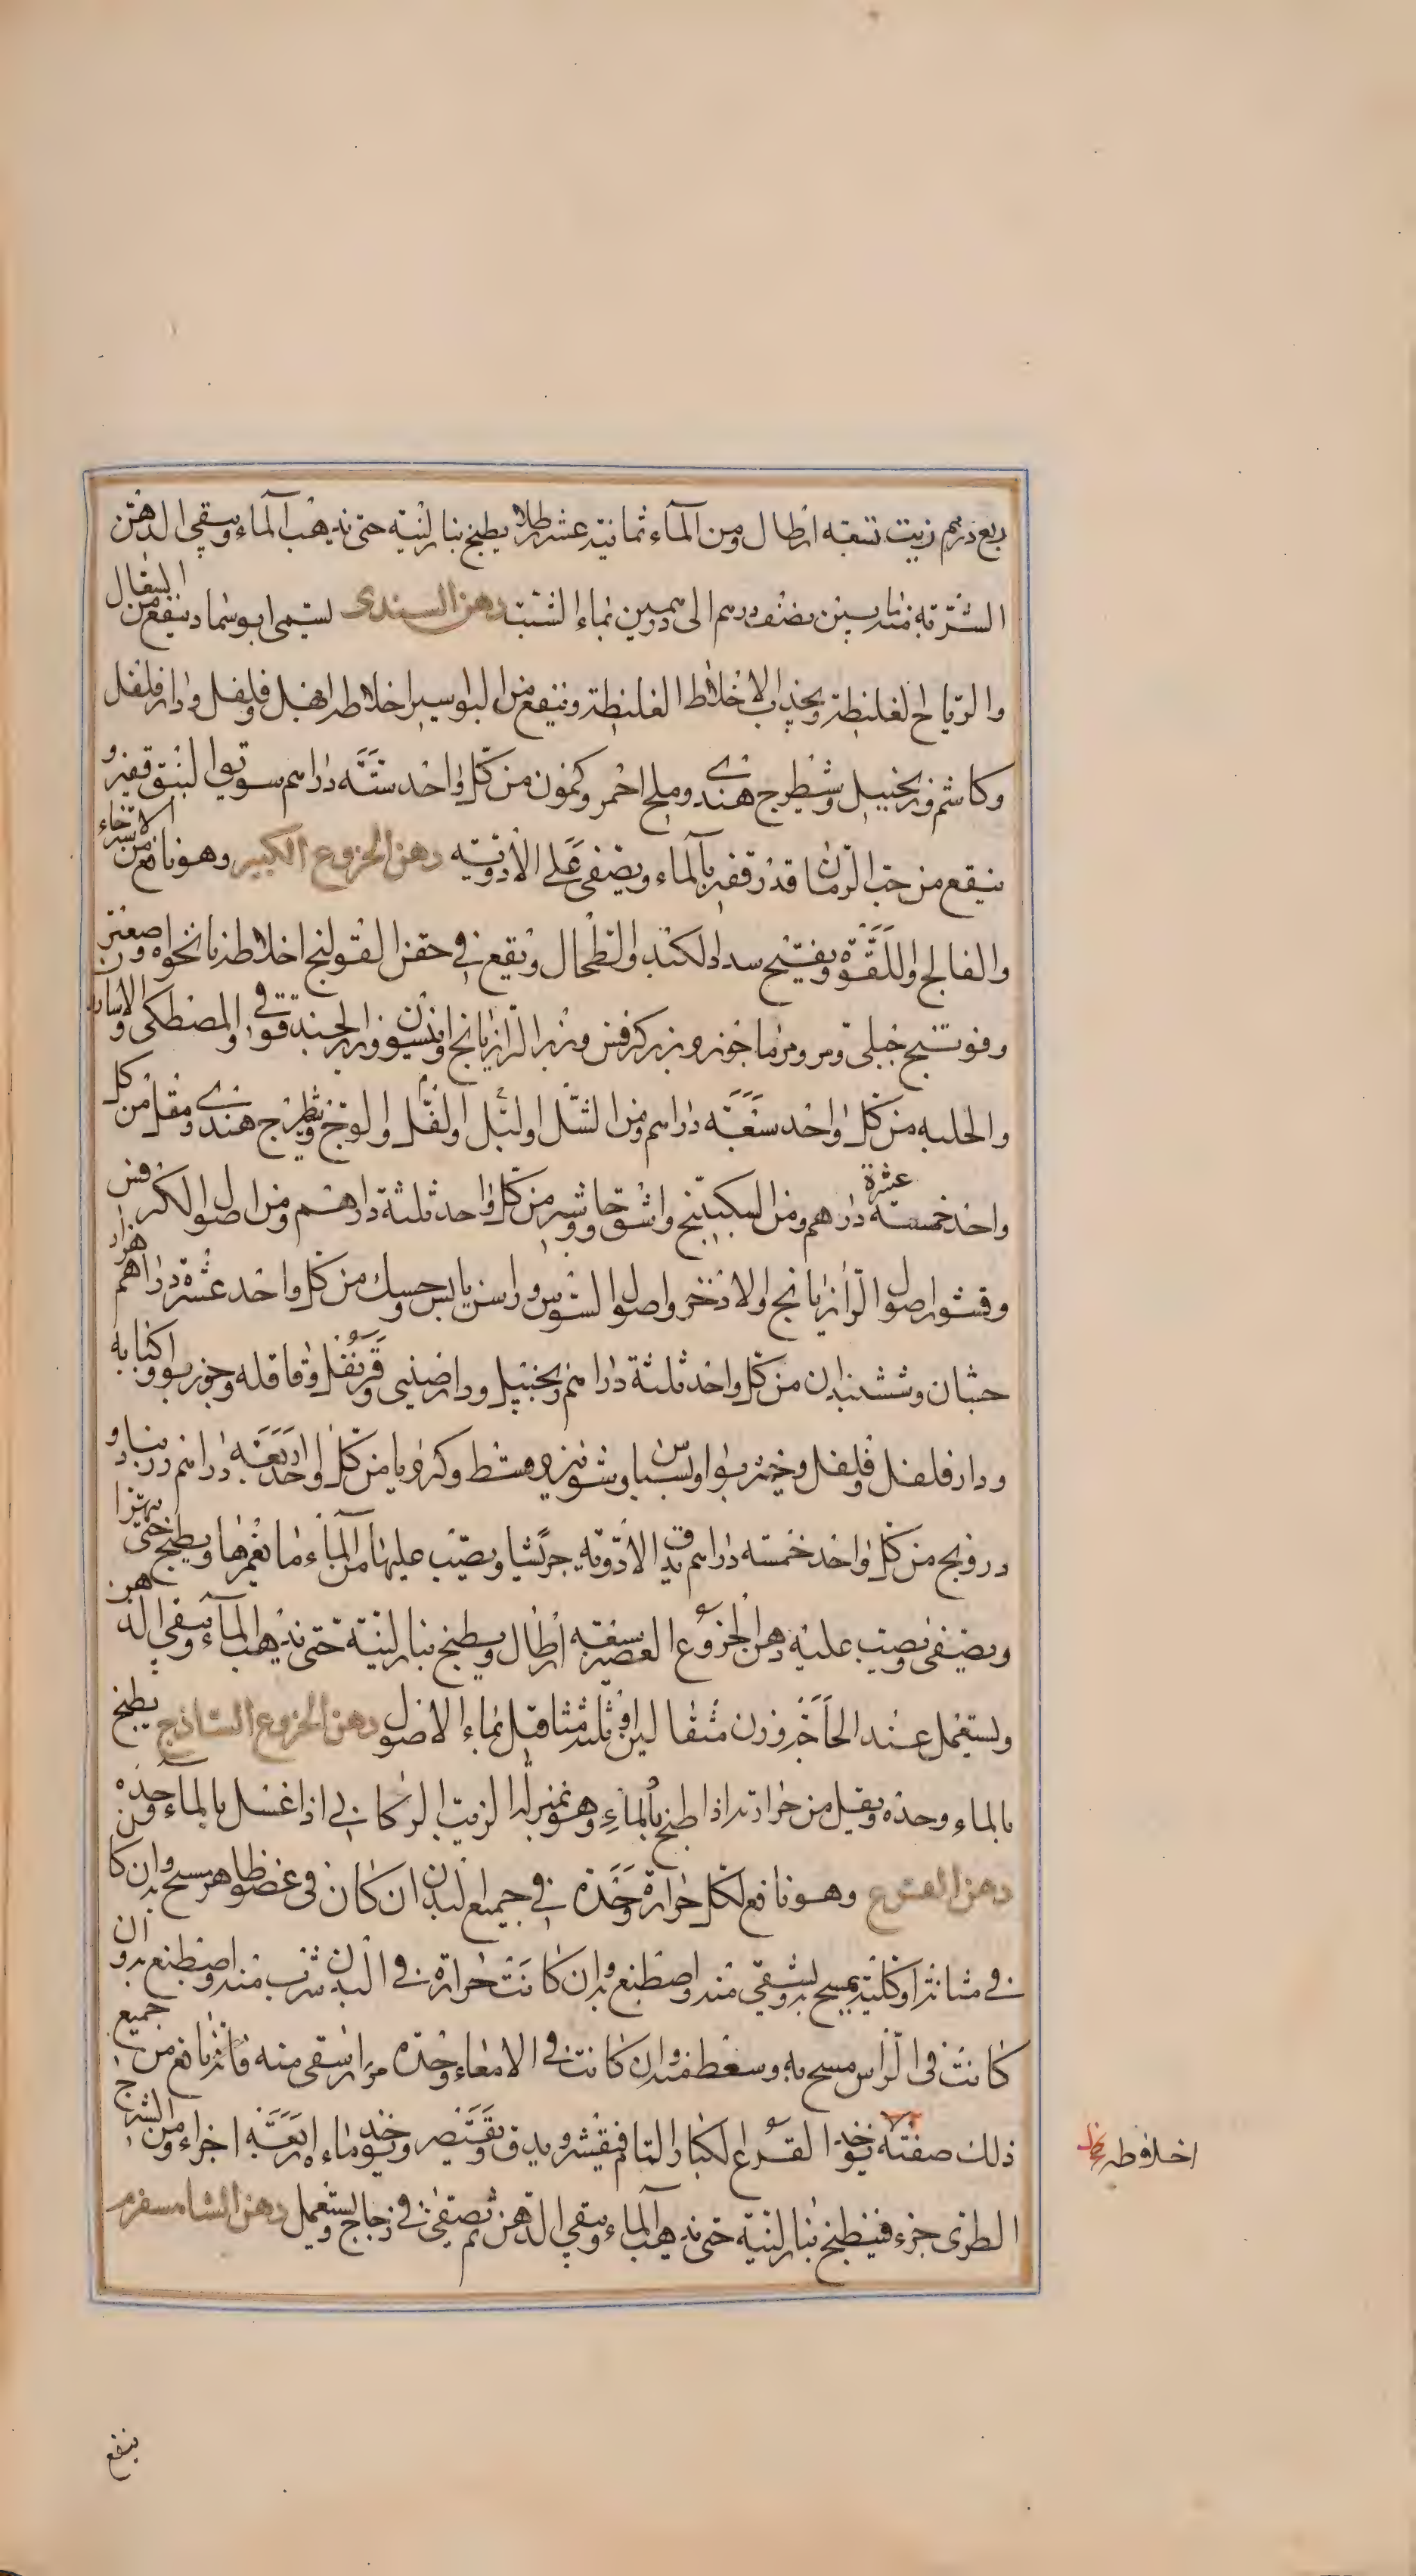 ربع درهم زيت تسعة ارطال ومن المآء ثمانية عشر رطلا يطبخ بنار لينة حتى يذهب المآء ويبقى الدهن
الشربة منه ما بين نصف درهم الى درهمين بماء الشبت دهن السندى يسمى ابوسماد ينفع من السعال
والرياح الغليظة ويجذب الاخلاط الغليظة وينفع من البواسير اخلاطه ابهل وفلفل ودارفلفل
وكاشم وزنجبيل وشيطرج هندى وملح احمر وكمون من كل واحد ستة دراهم سويق النبق قفيز و
ينقع من حب الرمان قدر قفيز بالماء ويصفى على الادوية دهن الخروع الكبير وهو نافع من الاسترخاء
والفالج واللقوة ويفتح سدد الكبد والطحال ويقع في حقن القولنج اخلاطه نانخواه وصعتر
وفوتنج جبلى ومرماخوز وبزر كرفس وبزر الرازيانج وانيسون وبزر الحندقوقى والمصطكى والاسارون
والحلبه من كل واحد سبعة دراهم ومن الشل والبل والفل والوج وشيطرج هندى ومقل من كل
واحد خمسة عشرة دراهم ومن السكبينج واشق وجاوشير من كل واحد ثلثة دراهم ومن اصول الكرفس
وقشور اصول الرازيانج والاذخر واصول السوس وراسن يابس وحسك من كل واحد عشرة دراهم هزار
جشان وششبندان من كل واحد ثلثة دراهم زنجبيل ودارصيني وقرنفل وقاقله وجوزبوا وكبابه
ودارفلفل وفلفل وخيربوا وبسباس وشونيز وقسط وكراويا من كل واحد اربعة دراهم زرنباد و
درونج من كل واحد خمسة دراهم يدق الادوية جريشا ويصب عليها من المآء ما يغمرها ويطبخ حتى يتهرا
ويصفى ويصب عليه دهن الخروع العصير سبعة ارطال ويطبخ بنار لينة حتى يذهب المآء ويبقى الدهن
ويستعمل عند الحاجة وزن مثقالين او ثلثة مثاقيل بماء الاصول دهن الخروع الساذج يطبخ
بالماء وحده ويقل من حرارته اذا طبخ بالماء وهو بمنزلة الزيت الركابى اذا غسل بالمآء وحده
دهن القرع وهو نافع لكل حرارة وحدة في جميع البدن ان كان فى عضو ظاهر مسح به وان كان
في مثانته او كليته يمسح به ويسقى منه واصطبغ به وان كانت حرارة في البدن شرب منه واصطبغ به وان
كانت فى الراس مسح به وسعط منه وان كانت في الامعاء وحده مرار سقى منه فانه نافع من جميع
ذلك صفته يؤخذ القرع الكبار التام فيقشر ويدق ويعتصر ويؤخذ ماءه اربعة اجزاء ومن الشيرج
الطرى جزء فيطبخ بنار لينة حتى يذهب المآء ويبقى الدهن ثم يصفى في زجاج ويستعمل دهن الشاهسفرم
اخلاطه
ينفع